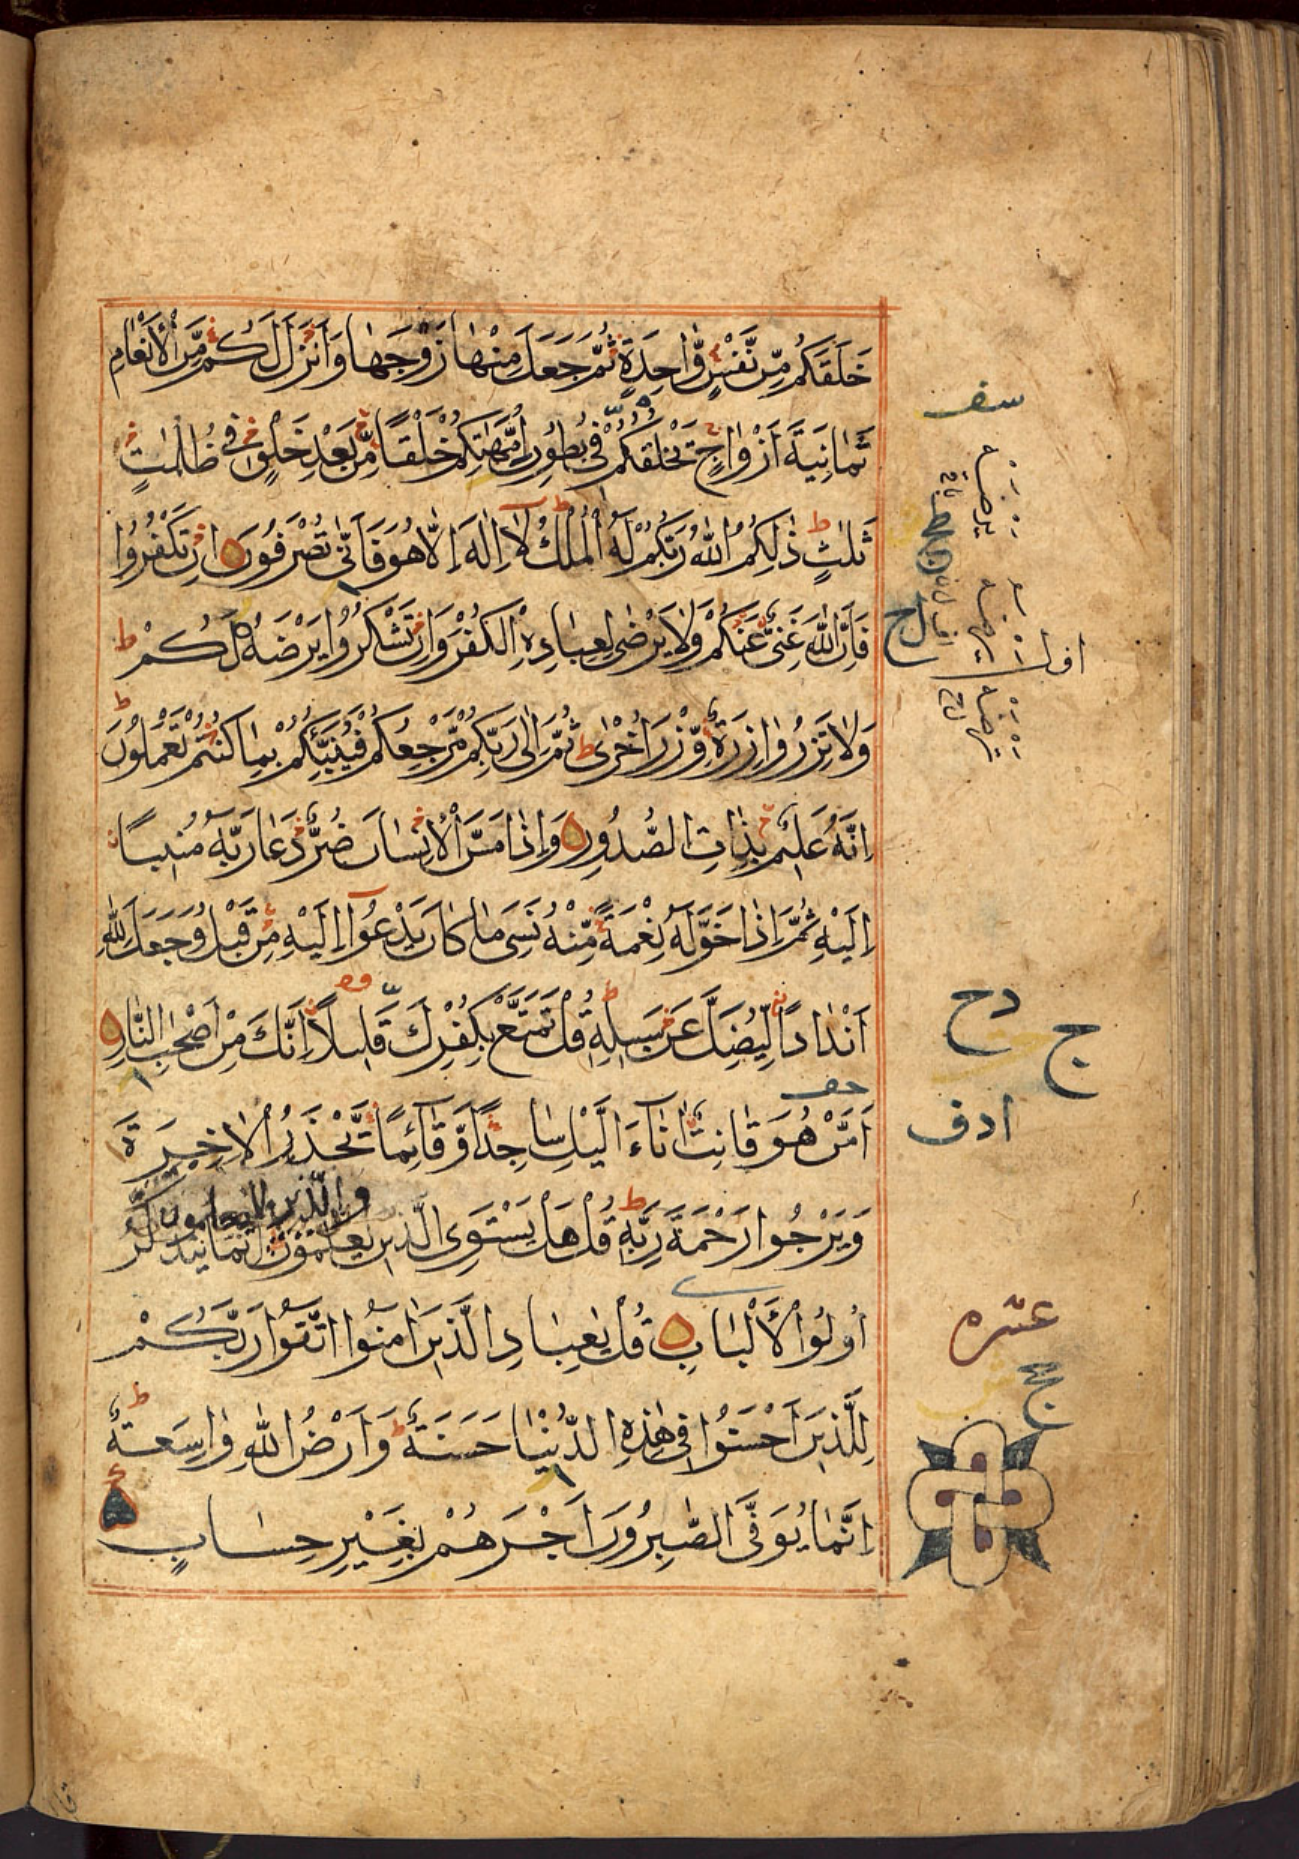 خَلَقَكُمْ مِّنْ نَّفْسٍ وَّاحِدَةٍ ثُمَّ جَعَلَ مِنْهَا زَوْجَهَا وَاَنْزَلَ لَكُمْ مِّنَ الْاَنْعَامِ
ثَمَانِيَةَ اَزْوَاجٍ يَخْلُقُكُمْ فِي بُطُونِ اُمَّهَاتِكُمْ خَلْقًا مِّنْ بَعْدِ خَلْقٍ فِي ظُلُمَاتٍ
ثَلٰثٍ ذٰلِكُمُ اللّٰهُ رَبُّكُمْ لَهُ الْمُلْكُ لَا اِلٰهَ اِلَّا هُوَ فَاَنّٰى تُصْرَفُونَ اِنْ تَكْفُرُوا
فَاِنَّ اللّٰهَ غَنِيٌّ عَنْكُمْ وَلَا يَرْضٰى لِعِبَادِهِ الْكُفْرَ وَاِنْ تَشْكُرُوا يَرْضَهُ لَكُمْ ط
وَلَا تَزِرُ وَازِرَةٌ وِّزْرَ اُخْرٰى ط ثُمَّ اِلٰى رَبِّكُمْ مَّرْجِعُكُمْ فَيُنَبِّئُكُمْ بِمَا كُنْتُمْ تَعْمَلُونَ ط
اِنَّهُ عَلِيمٌ بِذَاتِ الصُّدُورِ وَاِذَا مَسَّ الْاِنْسَانَ ضُرٌّ دَعَا رَبَّهُ مُنِيبًا
اِلَيْهِ ثُمَّ اِذَا خَوَّلَهُ نِعْمَةً مِّنْهُ نَسِيَ مَا كَانَ يَدْعُوا اِلَيْهِ مِنْ قَبْلُ وَجَعَلَ لِلّٰهِ
اَنْدَادًا لِّيُضِلَّ عَنْ سَبِيلِهِ ط قُلْ تَمَتَّعْ بِكُفْرِكَ قَلِيلًا اِنَّكَ مِنْ اَصْحٰبِ النَّارِ
اَمَّنْ هُوَ قَانِتٌ اٰنَاءَ الَّيْلِ سَاجِدًا وَّقَائِمًا يَّحْذَرُ الْاٰخِرَةَ
وَيَرْجُوا رَحْمَةَ رَبِّهِ ط قُلْ هَلْ يَسْتَوِى الَّذِينَ يَعْلَمُونَ وَالَّذِينَ لَا يَعْلَمُونَ اِنَّمَا يَتَذَكَّرُ
اُولُوا الْاَلْبَابِ قُلْ يٰعِبَادِ الَّذِينَ اٰمَنُوا اتَّقُوا رَبَّكُمْ
لِلَّذِينَ اَحْسَنُوا فِي هٰذِهِ الدُّنْيَا حَسَنَةٌ ط وَاَرْضُ اللّٰهِ وَاسِعَةٌ ط
اِنَّمَا يُوَفَّى الصّٰبِرُونَ اَجْرَهُمْ بِغَيْرِ حِسَابٍ
سف
دح
ج
ادف
عشره